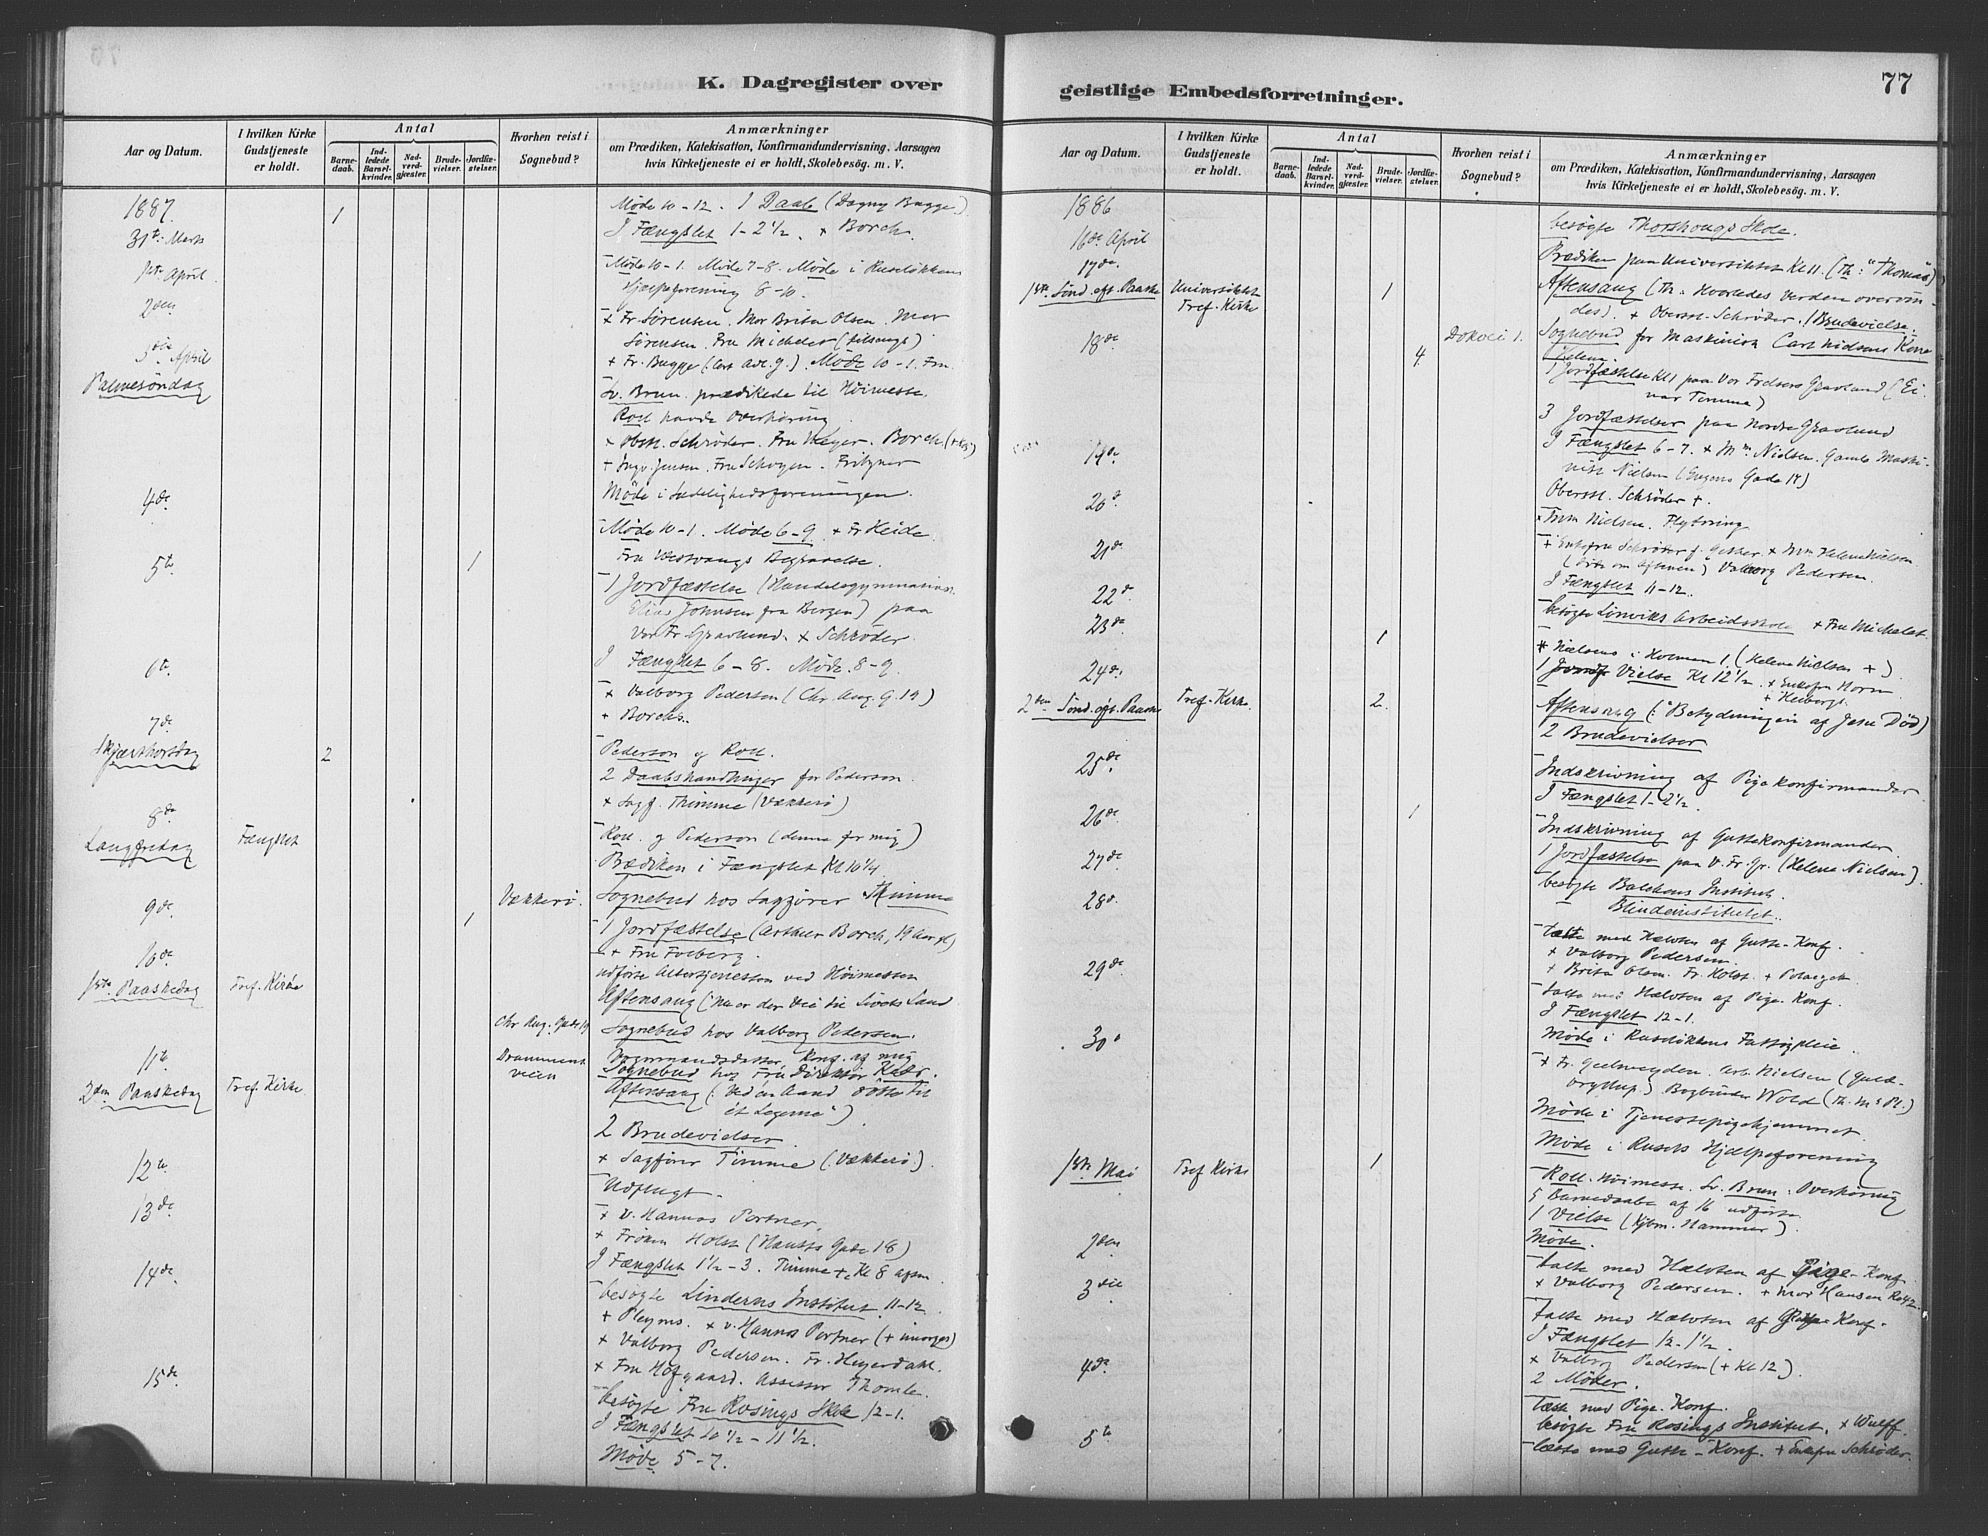 K. Dagregister over
Aar og Datum.
I hvilken Kirke
Gudstjeneste
er holdt.
Antal
Barne-
daab.
Ind-
ledede
Barsel-
kvinder.
Nad-
verd-
gjæster.
Brude-
vielser.
Jordfæ-
stelser.
Hvorhen reist i
Sognebud?
Anmærkninger
om Prædiken, Katekisation, Konfirmandundervisning, Aarsagen
hvis Kirketjeneste ei er holdt, Skolebesøg. m. V.
1887.
1
Møde 10-12. 1 Daab (Dagny Bugge.)
31te Marts
I Fængslet 1-2½. + Borch.
1ste April.
Møde 10-1. Møde 7-8. Møde i Ruseløkkens
Hjælpeforening 8-10.
2den
+ Fr Sørensen. Mor Brita Olsen. Mor
Sørensen. Fru Michelet
3die April
+ Fr. Bugge. Møde 10-1. Fru
Palmesøndag
Sv. Brun. prædikede til Høimesse.
Roll havde Overhøring
+ Obstl. Schrøder. Fru Meyer. Borch
+ Ingv. Jensen. Fru Schøyen. Fritzner
4de
Møde i Sædelighedsforeningen.
Møde 10-1. Møde 6-9. + Fr Heide.
5te
1
Fru Westvangs Begravelse.
1 Jordfæstelse (Handelsgymnasist
Elias Johnsen fra Bergen) paa
Vor Fr. Gravlund. + Schrøder.
6te
I Fængslet 6-8. Møde 8-9.
+ Valborg Pedersen (Chr. Aug. G. 19)
7de
+ Borchs.
Skjærthorsdag
2
Pederson og Roll.
2 Daabshandlinger for Pederson.
+ Sagf. Thimme (Vækkerø)
8de
Langfredag
Fængslet
Roll. og Pederson (denne for mig)
Prædiken i Fængslet Kl 10¼
9de
Vækkerø.
Sognebud hos Sagfører Thimme
1
1 Jordfæstelse (Arthur Borch, 19 Aar gl)
10de
+ Fru Froberg.
1ste Paaskedag
Tref. Kirke
udførte Altertjenesten ved Høimessen
Aftensang
Chr Aug. Gade 19
Sognebud hos Valborg Pedersen.
11te
Drammens
veien
Konf. af mig
Sognebud hos Fru Direktør
2den Paaskedag
Tref. Kirke
Aftensang
2 Brudevielser
12te
+ Sagfører Timme (Vækkerø).
Udflugt.
13de
+ v. Hannos Portner.
+ Frøken Holst (Gade 18)
14de
I Fængslet 1½-3. Timme +. Kl 8 aften.
besøgte Linderns Institut 11-12.
+ Pleyms. + v. Hannos Portner (+ imorges)
+ Valborg Pedersen. Fr. Heyerdahl.
15de
+ Fru Hofgaard. Assessor Thomle.
besøgte Fru Rosings Skole 12-1.
I Fængslet 10½-11½.
Møde 5-7.
geistlige Embedsforretninger.
77
Aar og Datum.
I hvilken Kirke
Gudstjeneste
er holdt.
Antal
Barne-
daab.
Ind-
ledede
Barsel-
kvinder.
Nad-
verd-
gjæster.
Brude-
vielser.
Jordfæ-
stelser.
Hvorhen reist i
Sognebud?
Anmærkninger
om Prædiken, Katekisation, Konfirmandundervisning, Aarsagen
hvis Kirketjeneste ei er holdt, Skolebesøg. m. V.
1886
16de April
besøgte Thorshougs Skole.
17de.
Prædiken paa Universitetet Kl 11. (Th: "Thomas)
1ste Sønd. eft. Paaske
Universitetet
Tref. Kirke
1
Aftensang (Th: Hvorledes Verden overvin-
des). + Oberstl. Schrøder. 1 Brudevielse.
18de
4
Dokvei 1.
Sognebud for Maskinist Carl Nielsens Kone
Helene.
1 Jordfæstelse Kl 1 paa Vor Frelsers Gravlund (Ei-
nar Timme)
3 Jordfæstelser paa Nordre Gravlund
19de
I Fængslet 6-7. + Mm Nielsen. Gamle Maski-
nist Nielsen (Eugens Gade 14)
20de
Oberstl. Schrøder +.
+ Mm Nielsen. Flytning
21de
+ Enkefru Schrøder f. + Mm Helene Nielsen
(om Aftenen) Valborg Pedersen.
I Fængslet 11-12.
22de
besøgte Lønviks Arbeidsskole + Fru Michelet.
23de
1
+ Nielsens i Holmen 1. (Helene Nielsen +).
1 Vielse Kl 12½. + Enkefru Horn
24de
+ Heibergs.
2den Sønd. eft. Paaske
Tref. Kirke.
2.
Aftensang (: Betydningen af Jesu Død)
2 Brudevielser
25de
Indskrivning af Pigekonfirmander.
I Fængslet 1-2½.
26de
1
Indskrivning af Guttekonfirmander.
1 Jordfæstelse paa V. Fr. Gr. (Helene Nielsen).
27de
besøgte Balchens Institut.
Blindeinstitutet.
28de
læste med Halvten af Gutte-Konf.
+ Valborg Pedersen.
29de
+ Brita Olsen. Fr. Holst.
talte med Halvten af Pige-Konf.
I Fængslet 12-1.
30te
Møde i Ruseløkkens Fattigpleie.
+ Fr. Geelmeyden. Arb. Nielsen (Guld-
bryllup.) Bogbinder Wold
Møde i Tjenestepigehjemmet.
Møde i Rusels Hjælpeforening
1ste Mai
Tref Kirke
1
Roll. Høimesse. Sv. Brun: Overhøring
5 Barnedaabe af 16 udførte
1 Vielse (Kjbm. Hammer).
2den
Møde.
talte med Halvten af Pige-Konf.
3die
+ Valborg Pedersen. + Mor Hansen
talte med Halvten af Gutte-Konf.
I Fængslet 12-1½.
4de
+ Valborg Pedersen (+ Kl 12).
2 Møder.
læste med Pige-Konf.
5te
besøgte Fru Rosings Institut. + Wulff.
læste med Gutte-Konf. + Enkefru Schrøder.